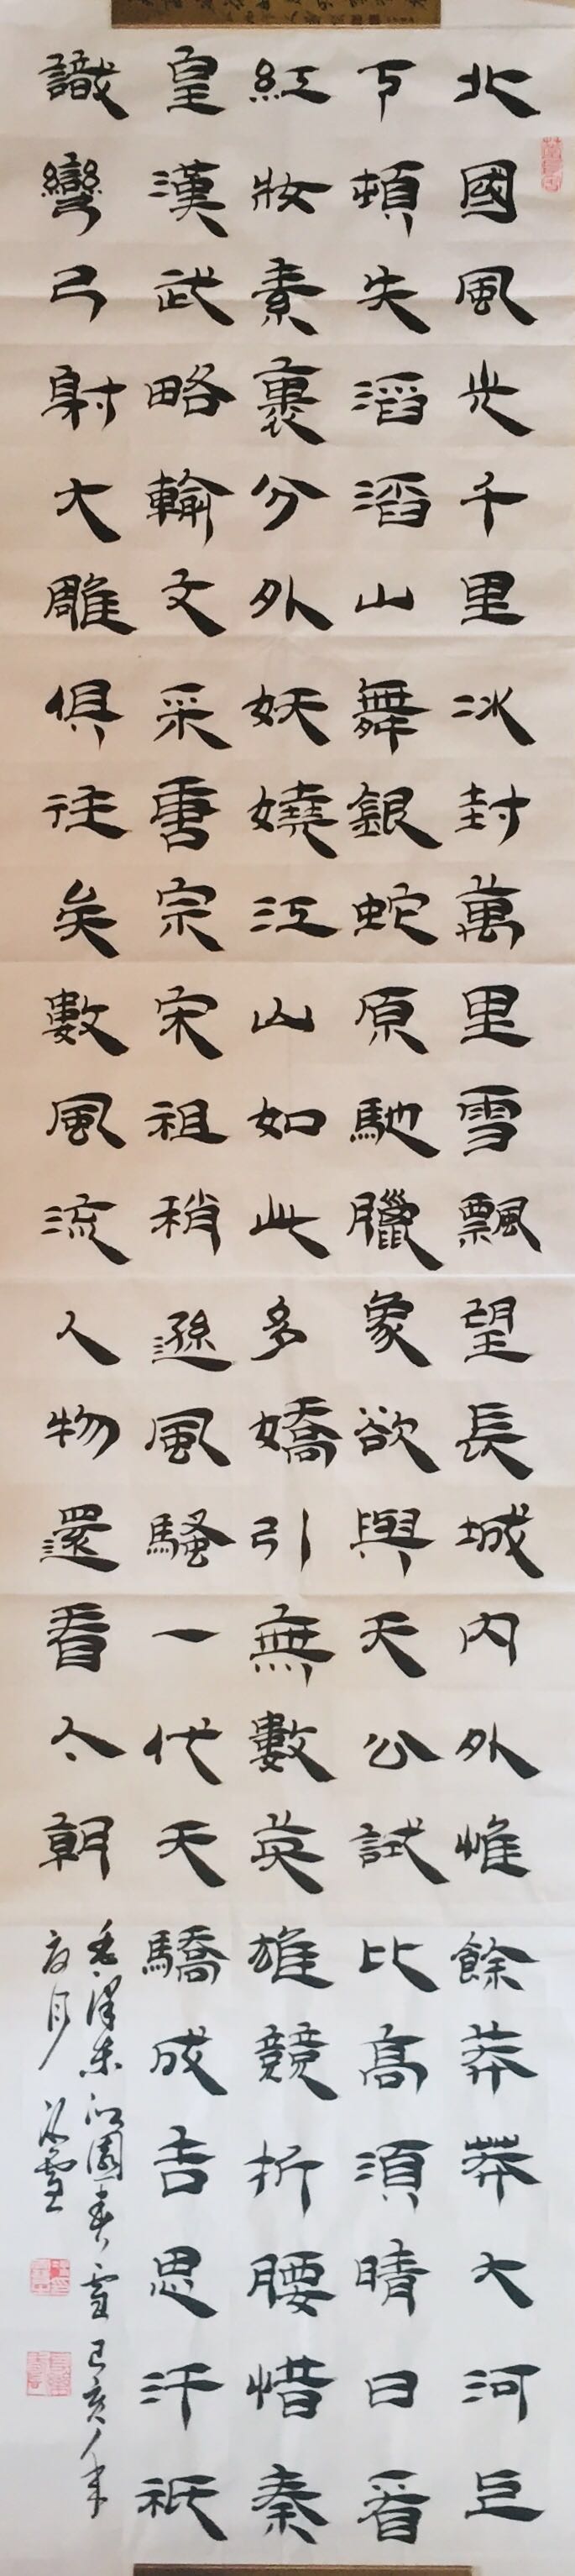 北國風光千里冰封萬里雪飄望長城內外惟餘莽莽大河上
下頓失滔滔山舞銀蛇原馳臘象欲與天公試比高須晴日看
紅妝素裹分外妖嬈江山如此多嬌引無數英雄競折腰惜秦
皇漢武略輸文采唐宗宋祖稍遜風騷一代天驕成吉思汗祇
識彎弓射大雕俱往矣數風流人物還看今朝
毛澤東沁園春雪己亥年
月